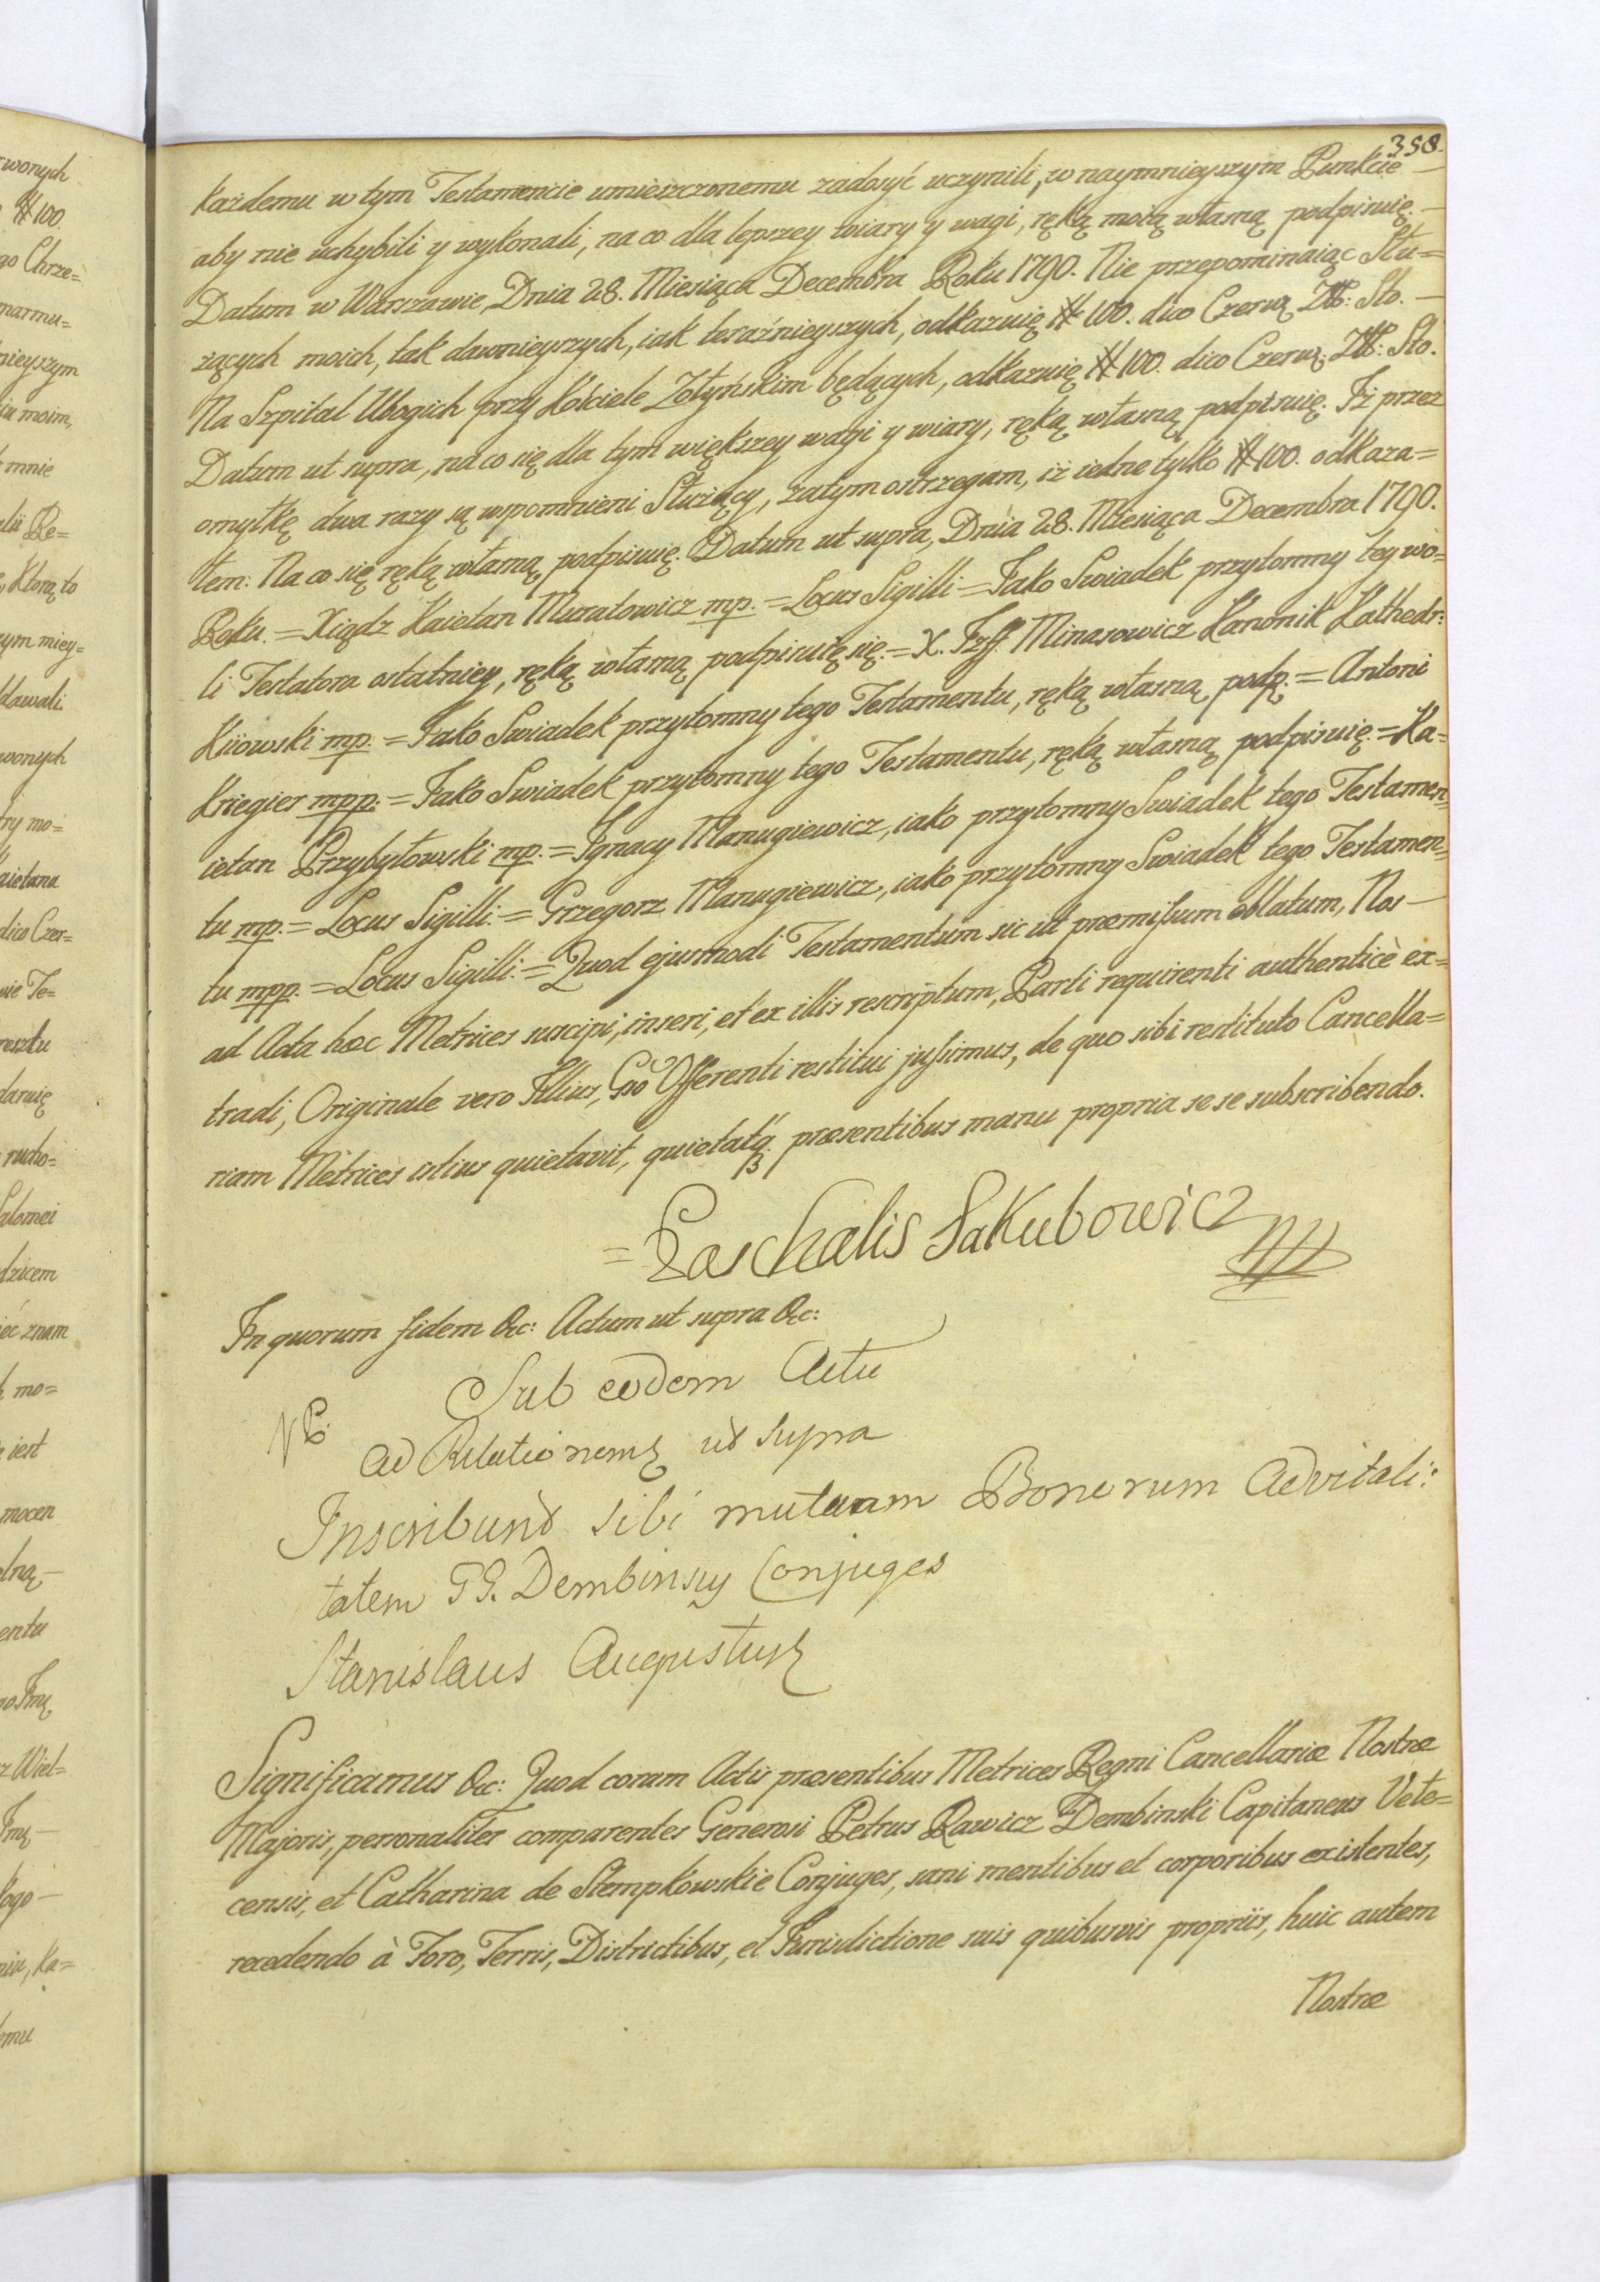 358.
każdemu w tym Testamencie umieszczonemu zadosyć uczynili, w naymnieyszym Punkcie —
aby nie uchybili y wykonali, na co dla lepszey wiary y wagi, ręką moią własną podpisuię. —
Datum w Warszawie, Dnia 28. Miesiąca Decembra Roku 1790. Nie przepominaiąc Słu=
żących moich, tak dawnieyszych, iak teraźnieyszych, odkazuię # 100. dico Czerwą Złł: Sto. —
Na Szpital Ubogich przy Kościele Żółyńskim będących, odkazuię # 100. dico Czerw: Złł: Sto.
Datum ut supra, na co się dla tym większey wagi y wiary, ręką własną podpisuię. Iż przez
omyłkę dwa razy są wspomnieni Służący, zatym ostrzegam, iż iedne tylko # 100. odkaza=
łem: Na co się ręką własną podpisuię. Datum ut supra, Dnia 28. Miesiąca Decembra 1790.
Roku. = Xiądz Kaietan Muratowicz mp. = Locus Sigilli = Jako Swiadek przytomny tey wo=
li Testatora ostatniey, ręką własną podpisuię się. = X. Jzff. Minasowicz Kanonik Kathedr:
Kiiowski mp. = Jako Swiadek przytomny tego Testamentu, ręką własną podp. = Antoni
Kriegier mpp. = Jako Swiadek przytomny tego Testamentu, ręką własną podpisuię. = Ka=
ietan Przybyłowski mp. = Ignacy Manugiewicz, iako przytomny Swiadek tego Testamen=
tu mp. = Locus Sigilli. = Grzegorz Manugiewicz, iako przytomny Swiadek tego Testamen=
tu mpp. = Locus Sigilli. = Quod ejusmodi Testamentum sic ut præmissum oblatum, Nos —
ad Acta hæc Metrices suscipi, inseri, et ex illis rescriptum, Parti requirenti authenticè ex=
tradi, Originale vero Illius, Gso Offerenti restitui jussimus, de quo sibi restituto Cancella=
riam Metrices istius quietavit, quietatq3 præsentibus manu propria se se subscribendo.
= Paschalis Jakubowicz
In quorum fidem &c: Actum ut supra &c:
Sub eodem Actu
Ad Relationem ut supra
Inscribunt sibi mutuam Bonorum Advitali:
tatem GG. Dembinscy Conjuges
Stanislaus Augustus
Significamus &c: Quod coram Actis præsentibus Metrices Regni Cancellariæ Nostræ
Majoris, personaliter comparentes Generosi Petrus Rawicz Dembinski Capitaneus Vete=
censis, et Catharina de Stempkowskie Conjuges, sani mentibus et corporibus existentes,
recedendo à Foro, Terris, Districtibus, et Jurisdictione suis quibusvis propriis, huic autem
Nostræ